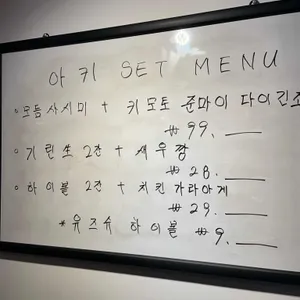 아키 SET MENU
◦ 모듬사시미 + 키모토 준마이 다이긴조
₩ 99.___
◦ 기린生 2잔 + 새우깡
₩ 28.___
◦ 하이볼 2잔 + 치킨가라아게
₩ 29.___
* 유즈슈 하이볼 ₩ 9.___